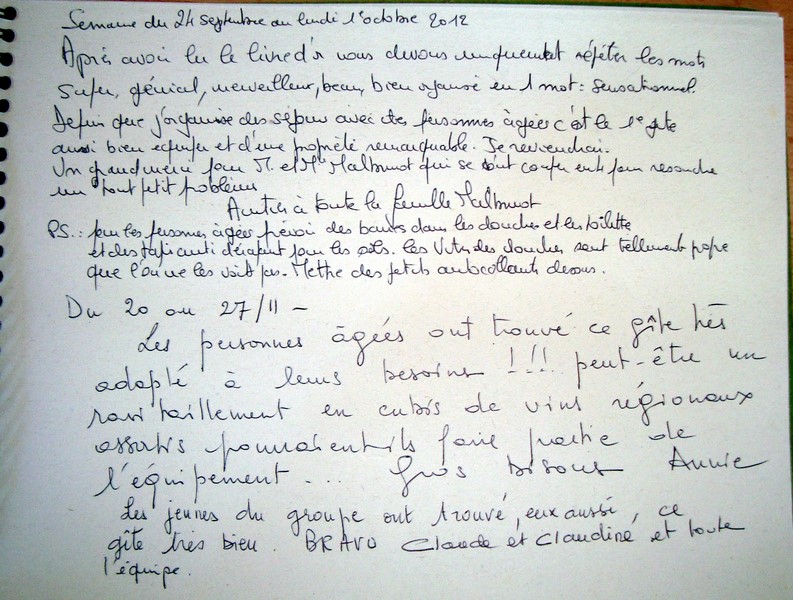 Semaine du 24 septembre au lundi 1er octobre 2012
Après avoir lu le livre d'or nous devons uniquement répéter les mots
super, génial, merveilleux, beau, bien organisé en 1 mot : sensationnel.
Depuis que j'organise des séjours avec des personnes âgées c'est le 1er gîte
aussi bien équipé et d'une propreté remarquable. Je reviendrai.
Un grand merci pour M. et Mme Malbrunot qui se sont coupé en 4 pour resoudre
un tout petit problème
Amitiés à toute la famille Malbrunot
PS. : pour les personnes âgées prévoir des barres dans les douches et les toilette
et des tapis anti dérapant pour les sols. les vitres des douches sont tellement propre
que l'on ne les voit pas. Mettre des petits autocollants dessus.
Du 20 au 27/11 -
Les personnes âgées ont trouvé ce gîte très
adapté à leurs besoins !!! peut-être un
ravitaillement en cubis de vins régionaux
assortis pourraient-ils faire partie de
l'équipement... Gros bisous Annie
Les jeunes du groupe ont trouvé, eux aussi, ce
gîte très bien. BRAVO Claude et Claudine et toute
l'équipe.